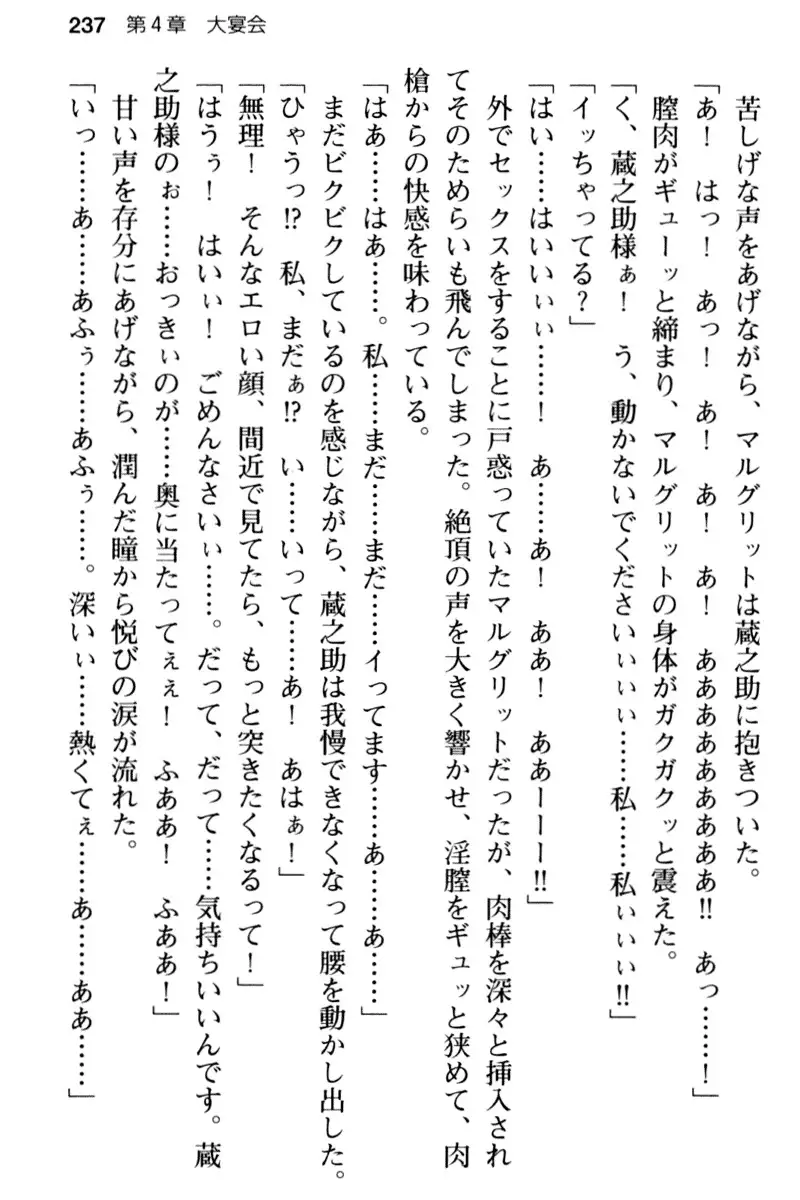 237 第4章 大宴会
苦しげな声をあげながら、マルグリットは蔵之助に抱きついた。
「あ！ はっ！ あっ！ あ！ あ！ あ！ ああああああああああ‼ あっ……！」
膣肉がギューッと締まり、マルグリットの身体がガクガクッと震えた。
「く、蔵之助様ぁ！ う、動かないでくださいぃぃぃ……私……私ぃぃぃ‼」
「イッちゃってる？」
「はい……はいいぃぃ……！ あ……あ！ ああ！ ああーーー‼」
外でセックスをすることに戸惑っていたマルグリットだったが、肉棒を深々と挿入され
てそのためらいも飛んでしまった。絶頂の声を大きく響かせ、淫膣をギュッと狭めて、肉
槍からの快感を味わっている。
「はあ……はあ……。私……まだ……まだ……イってます……あ……あ……」
まだビクビクしているのを感じながら、蔵之助は我慢できなくなって腰を動かし出した。
「ひゃうっ⁉ 私、まだぁ⁉ い……いって……あ！ あはぁ！」
「無理！ そんなエロい顔、間近で見てたら、もっと突きたくなるって！」
「はうぅ！ はいぃ！ ごめんなさいぃ……。だって、だって……気持ちいいんです。蔵
之助様のぉ……おっきぃのが……奥に当たってぇぇ！ ふああ！ ふああ！」
甘い声を存分にあげながら、潤んだ瞳から悦びの涙が流れた。
「いっ……あ……あふぅ……あふぅ……。深いぃ……熱くてぇ……あ……ああ……」